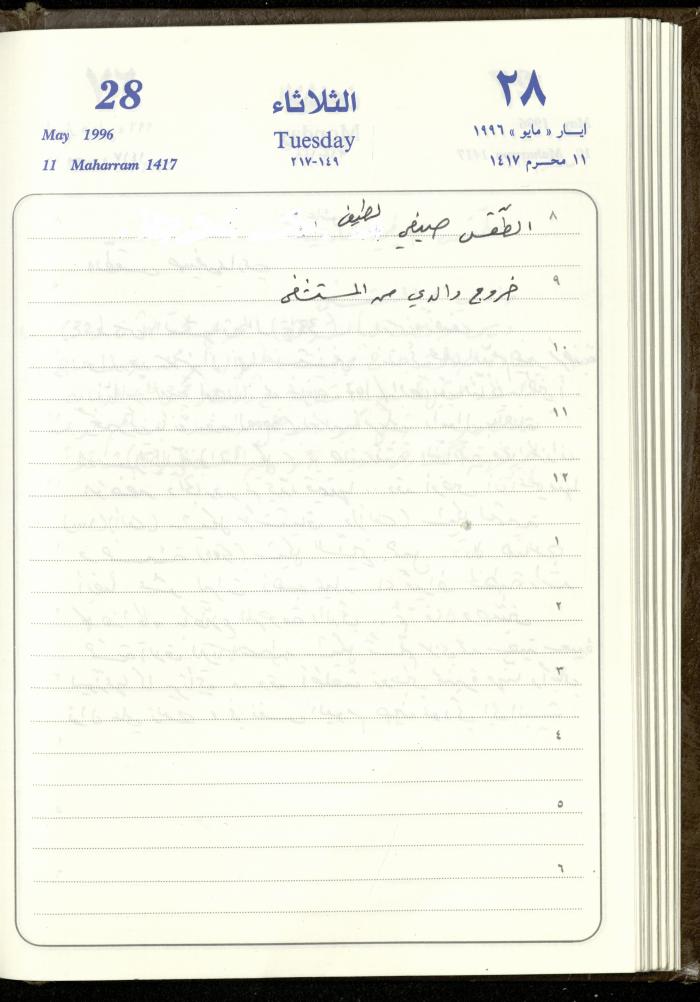 28
الثلاثاء
٢٨
May 1996
Tuesday
ايـار « مايو » ١٩٩٦
11 Maharram 1417
٢١٧-١٤٩
١١ محـرم ١٤١٧
٨ الطّقس صيفي لطيف
٩ خروج والدي من المستشفى
١٠
١١
١٢
١
٢
٣
٤
٥
٦